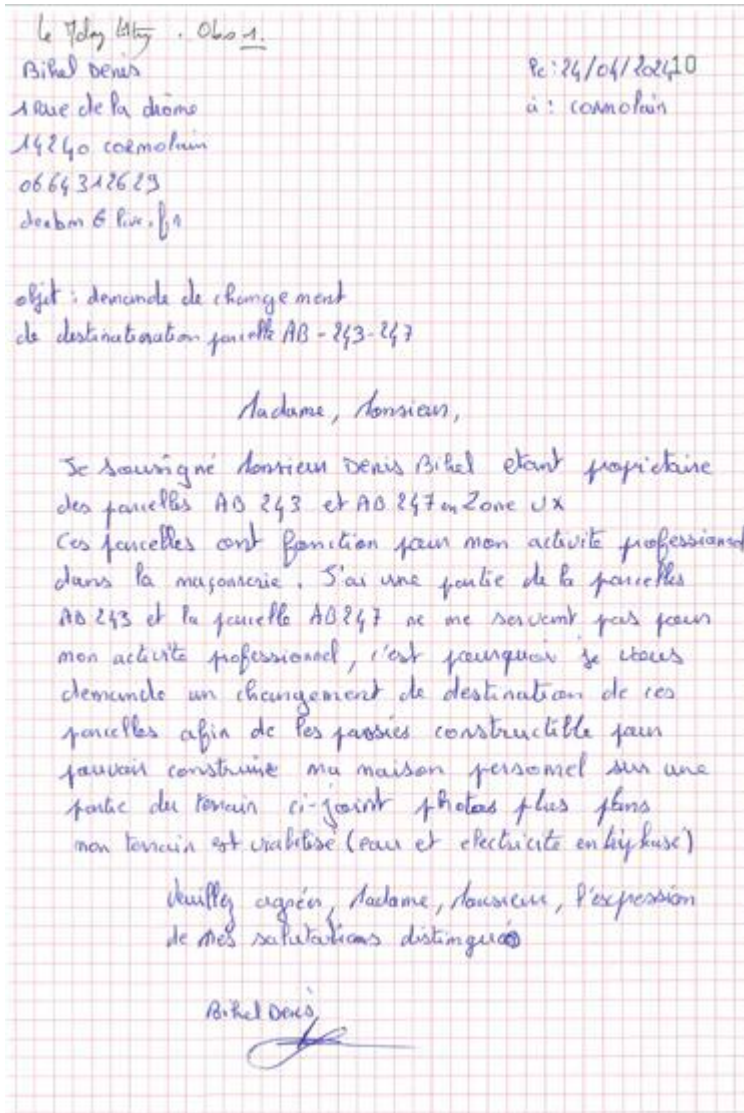 Obs 1.
Bihel Denis
1 Rue de la drôme
14240 cormolain
0664312629
objet : demande de changement
de destinatioration parcelle AB - 243-247
Madame, Monsieur,
Je sousigné Monsieur Denis Bihel etant propietaire
des parcelles AB 243 et AB 247 en Zone UX
Ces parcelles ont fonction pour mon activité professionnel
dans la maçonnerie. J'ai une partie de la parcelles
AB 243 et la parcelle AB247 ne me servent pas pour
mon activité professionnel, c'est pourquoi je vous
demande un changement de destination de ces
parcelles afin de les passées constructible pour
pouvoir construire ma maison personnel sur une
partie du terrain ci-joint photos plus plans
mon terrain est viabilisé (eau et electricité en triphasé)
Veuillez agréer, Madame, Monsieur, l'expression
de mes salutations distingués
Bihel Denis
le : 24/04/2024
10
à : cormolain